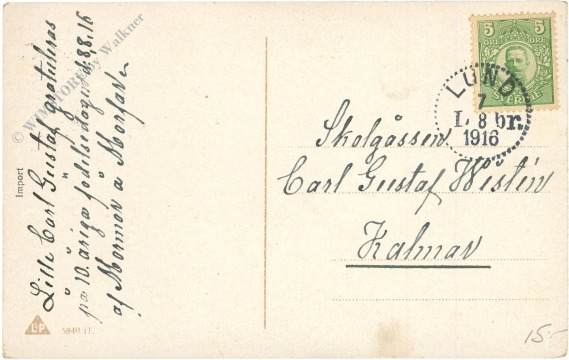 Lille Carl Gustaf gratuleras
på 10 åriga födelsedagen d. 8/8. 16
af Mormor & Morfar
Import
L&P
5840 II.
© WINSTORE by Walkner
5 5
ÖRE ÖRE
SVERIGE
LUND
7
8
1916
Skolgåssen
Carl Gustaf Westin
Kalmar
15-